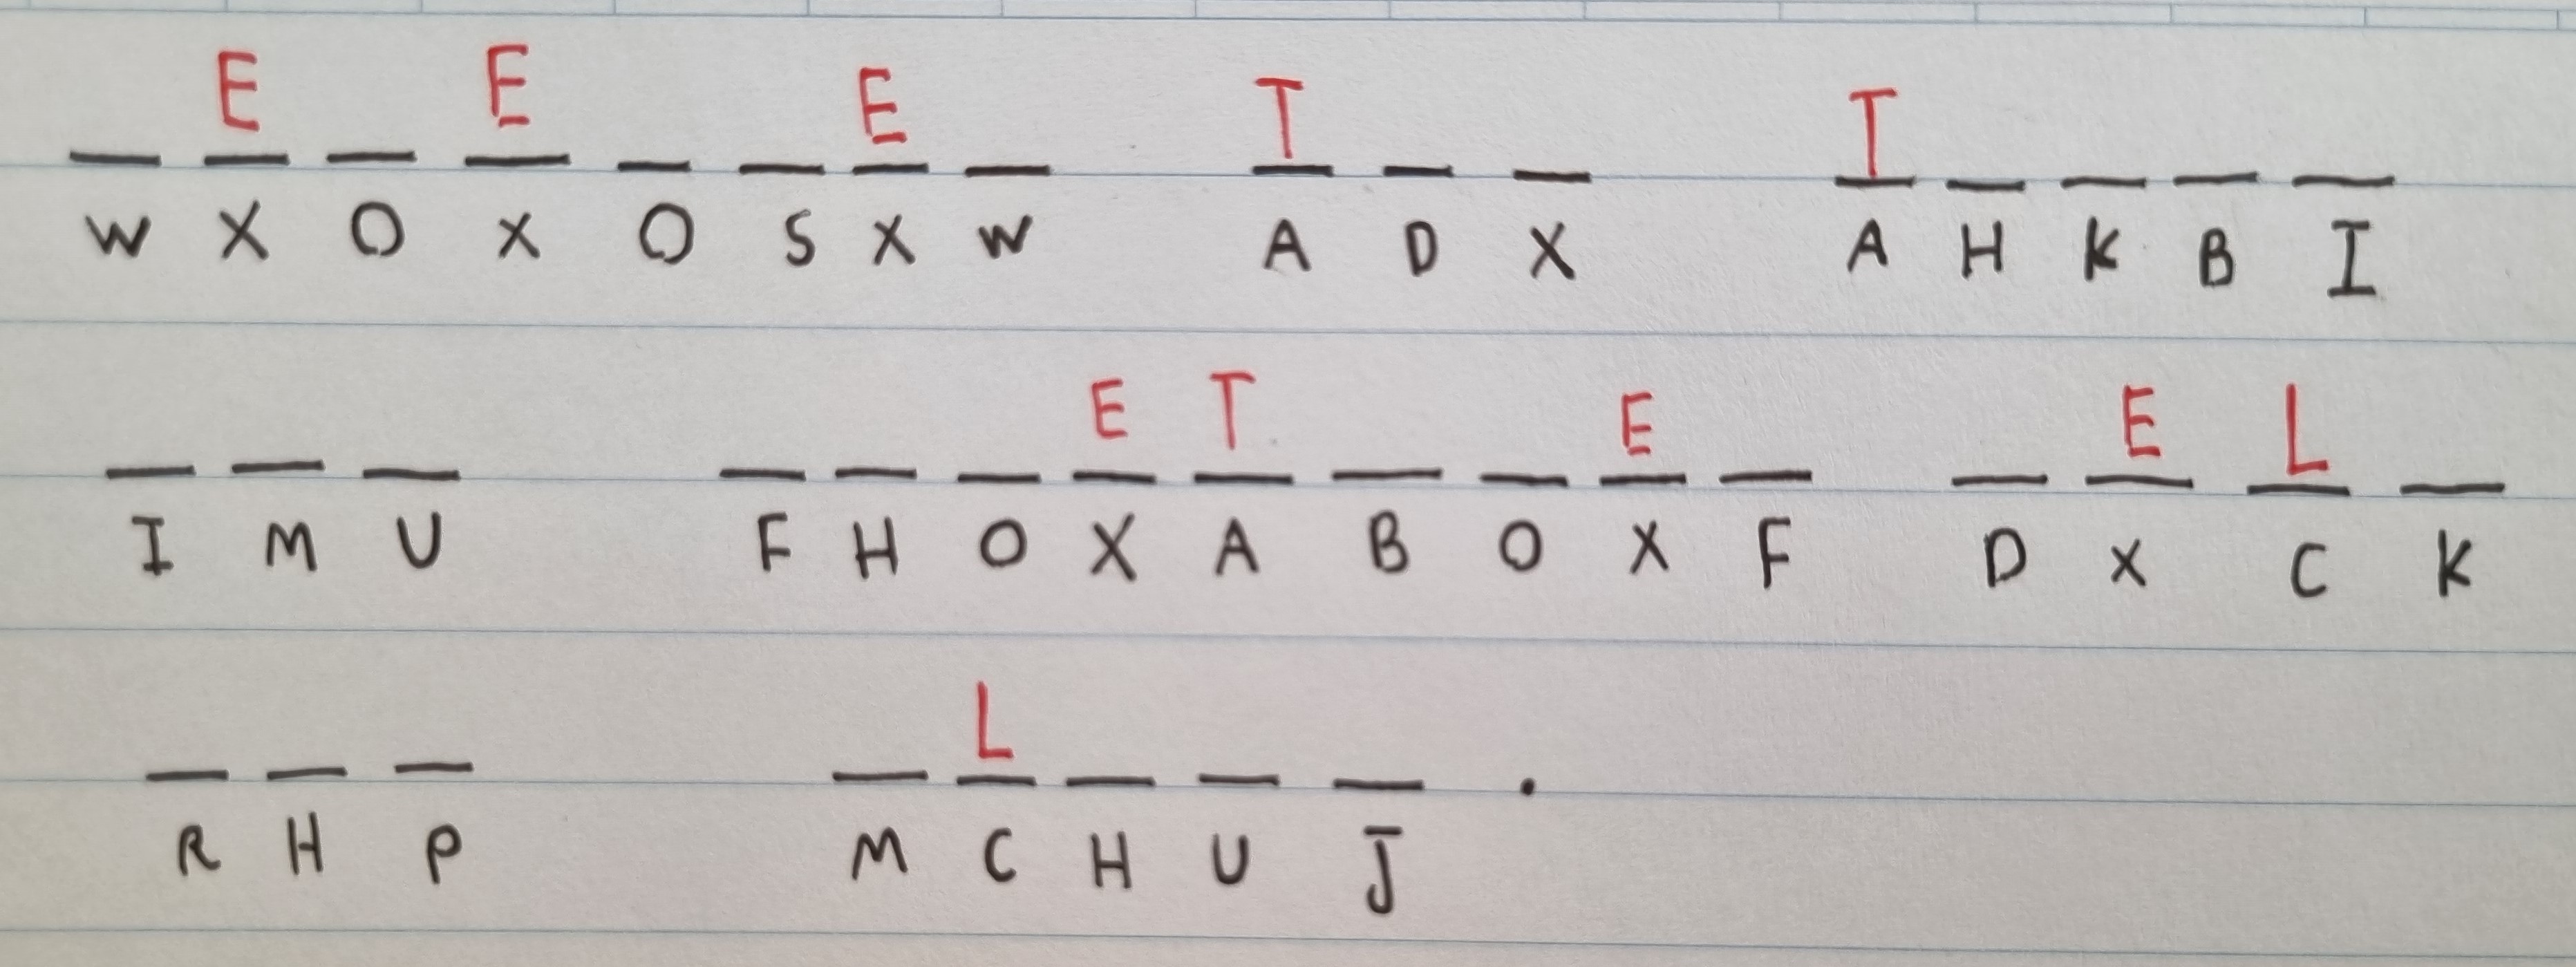 E E E T T
W X O X O S X W A D X A H K B I
E T E E L
I M U F H O X A B O X F D X C K
L
R H P M C H U J .